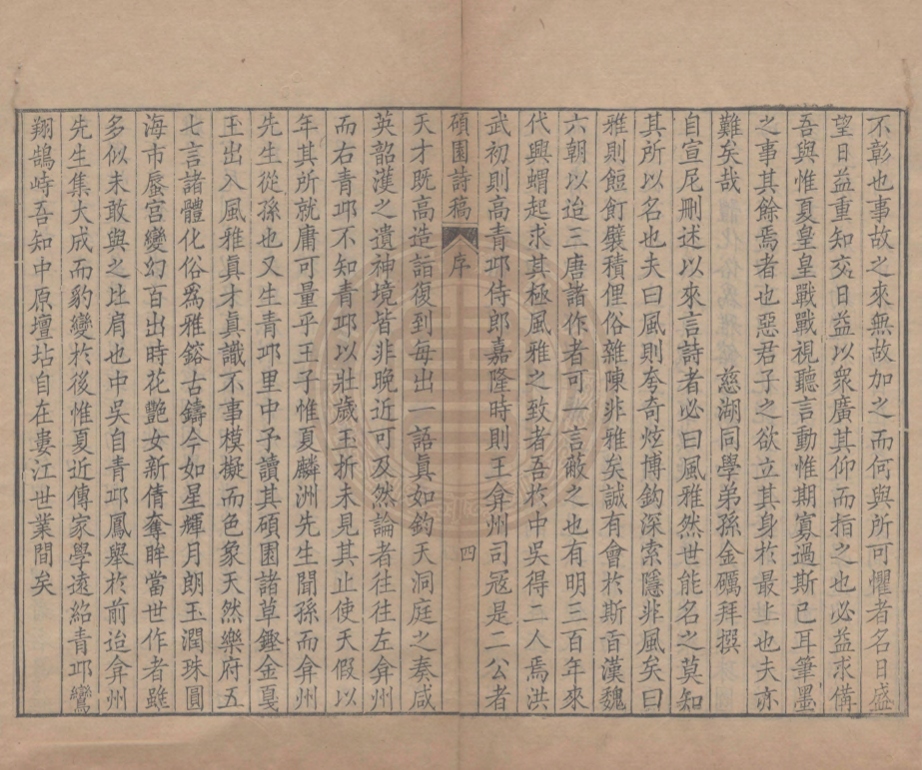 不彰也事故之來無故加之而何與所可懼者名日盛
望日益重知交日益以衆廣其仰而指之也必益求備
吾與惟夏皇皇戰戰視聽言動惟期寡過斯已耳筆墨
之事其餘焉者也惡君子之欲立其身於最上也夫亦
難矣哉
慈湖同學弟孫金礪拜撰
自宣尼刪述以來言詩者必曰風雅然世能名之莫知
其所以名也夫曰風則夸奇炫博鈎深索隱非風矣曰
雅則餖飣襞積俚俗雜陳非雅矣誠有會於斯旨漢魏
六朝以迨三唐諸作者可一言蔽之也有明三百年來
代興蝟起求其極風雅之致者吾於中吳得二人焉洪
武初則高青邱侍郎嘉隆時則王弇州司寇是二公者
碩園詩稿 序 四
天才既高造詣復到每出一語眞如鈞天洞庭之奏咸
英韶濩之遺神境皆非晚近可及然論者往往左弇州
而右青邱不知青邱以壯歲玉折未見其止使天假以
年其所就庸可量乎王子惟夏麟洲先生聞孫而弇州
先生從孫也又生青邱里中予讀其碩園諸草鏗金戛
玉出入風雅眞才眞識不事模擬而色象天然樂府五
七言諸體化俗爲雅鎔古鑄今如星輝月朗玉潤珠圓
海市蜃宮變幻百出時花艷女新倩奪眸當世作者雖
多似未敢與之比肩也中吳自青邱鳳舉於前迨弇州
先生集大成而豹變於後惟夏近傳家學遠紹青邱鸞
翔鵠峙吾知中原壇坫自在婁江世業間矣